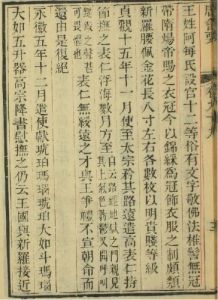 王姓阿每氏設官十二等俗有文字敬佛法椎髻無冠
帶隋煬帝賜之衣冠今以錦綵爲冠飾衣服之制頗類
新羅腰佩金花長八寸左右各數枚以明貴賤等級
貞觀十五年十一月使至太宗矜其路遠遣高表仁持
節撫之表仁浮海數月方至自云路經地獄之門親見
其上氣色蓊鬱又聞呼叫
鎚鍛之聲甚可畏懼也表仁無綏遠之才與王爭禮不宣朝命而
還由是復絕
永徽五年十二月遣使獻琥珀瑪瑙琥珀大如斗瑪瑙
大如五升器高宗降書慰撫之仍云王國與新羅接近